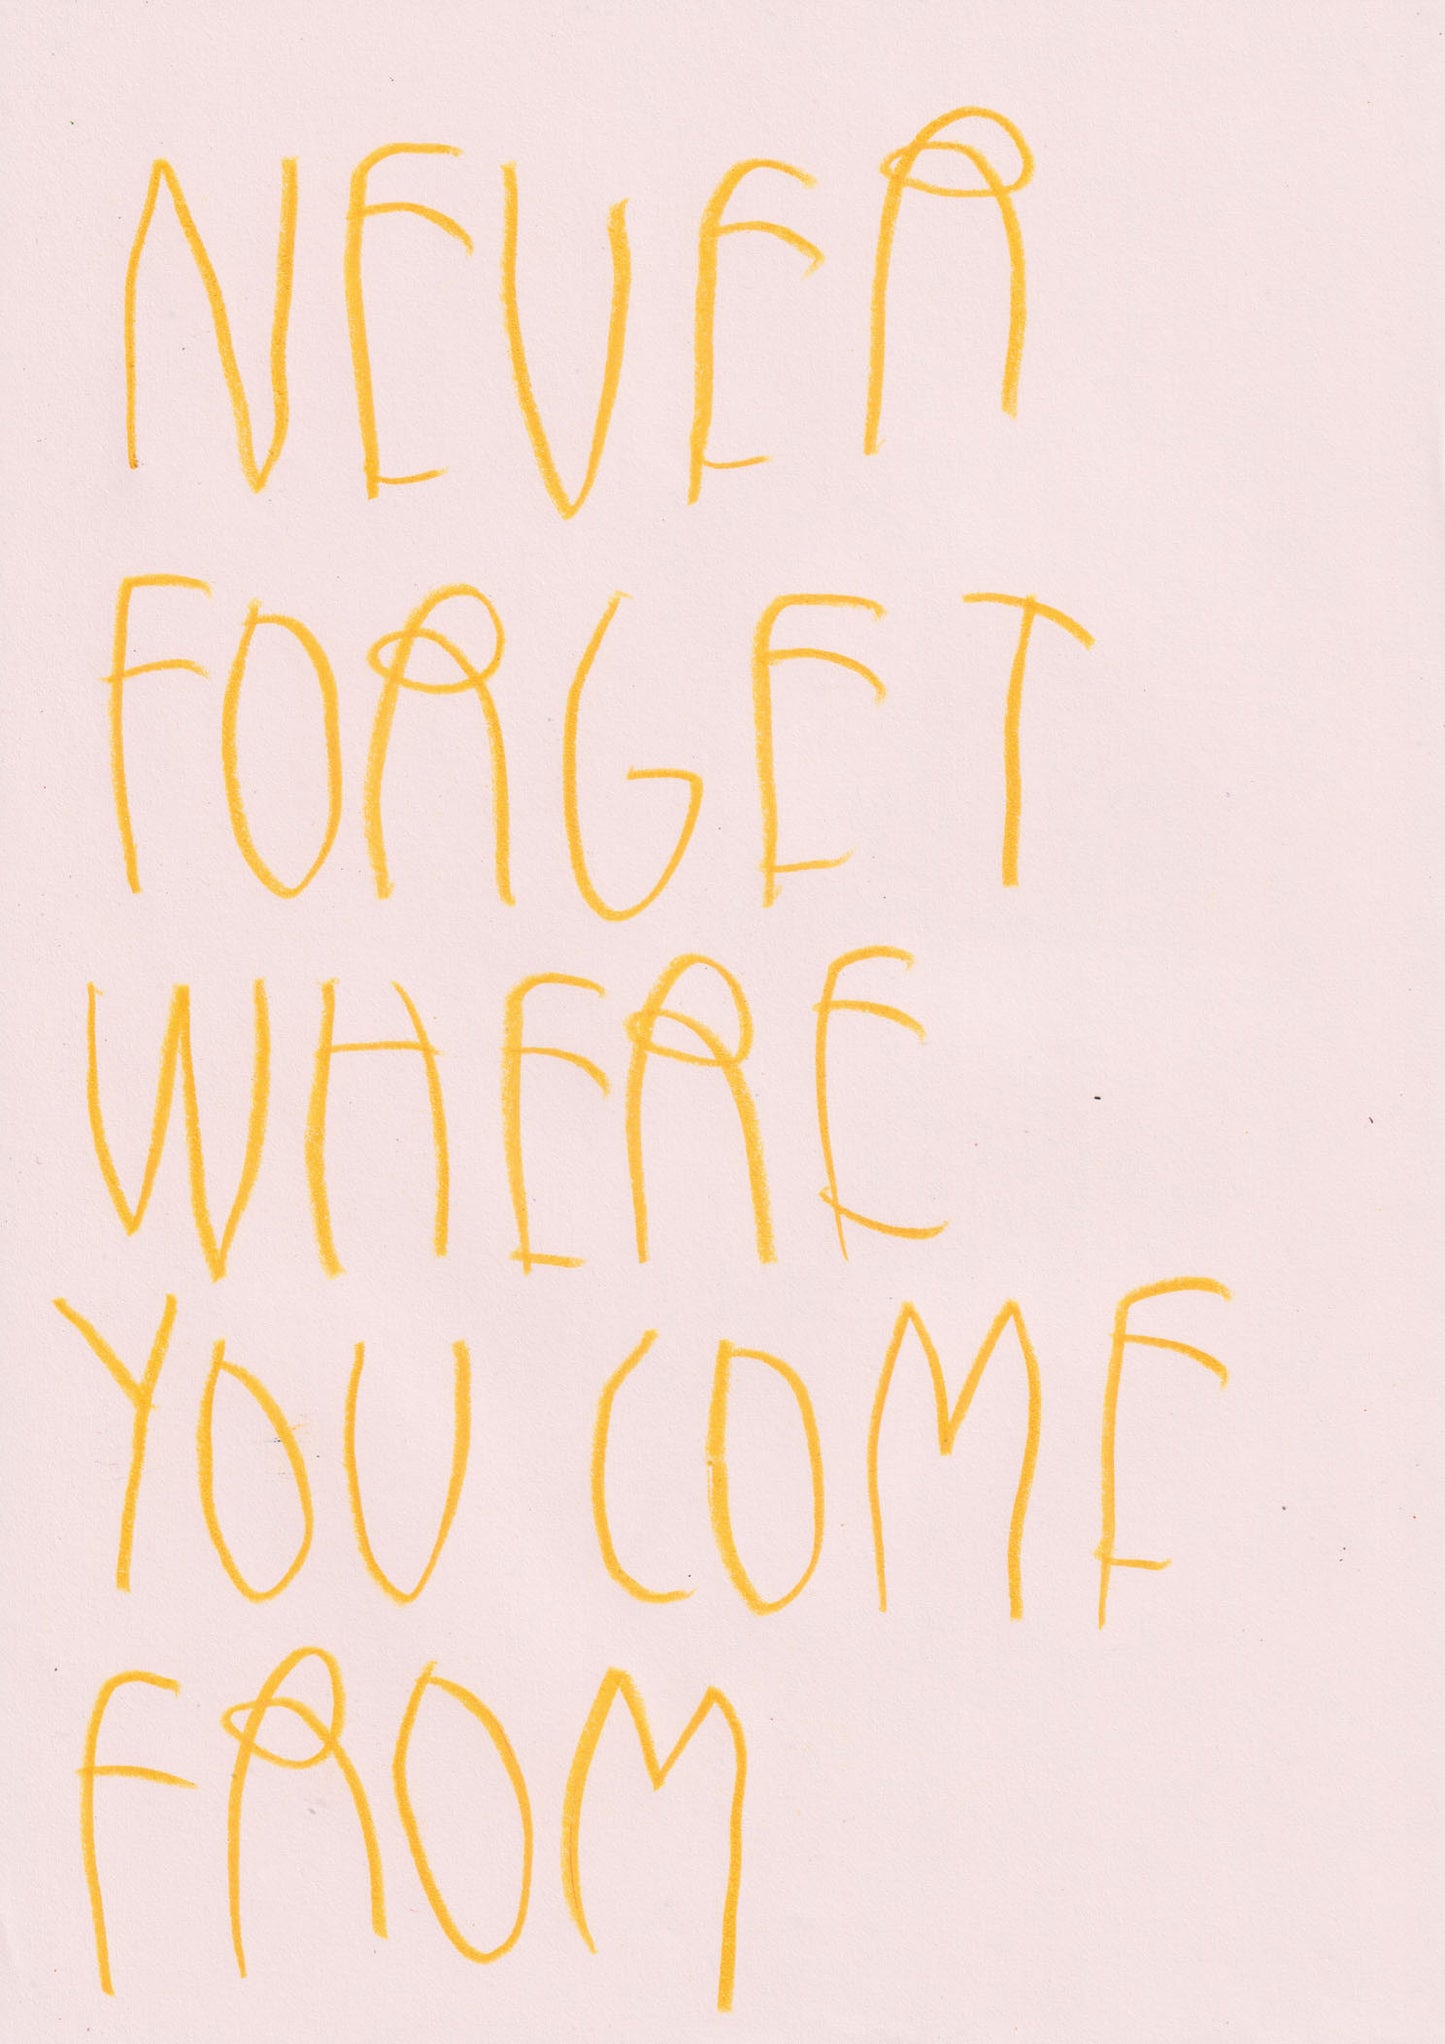 NEVER
FORGET
WHERE
YOU COME
FROM